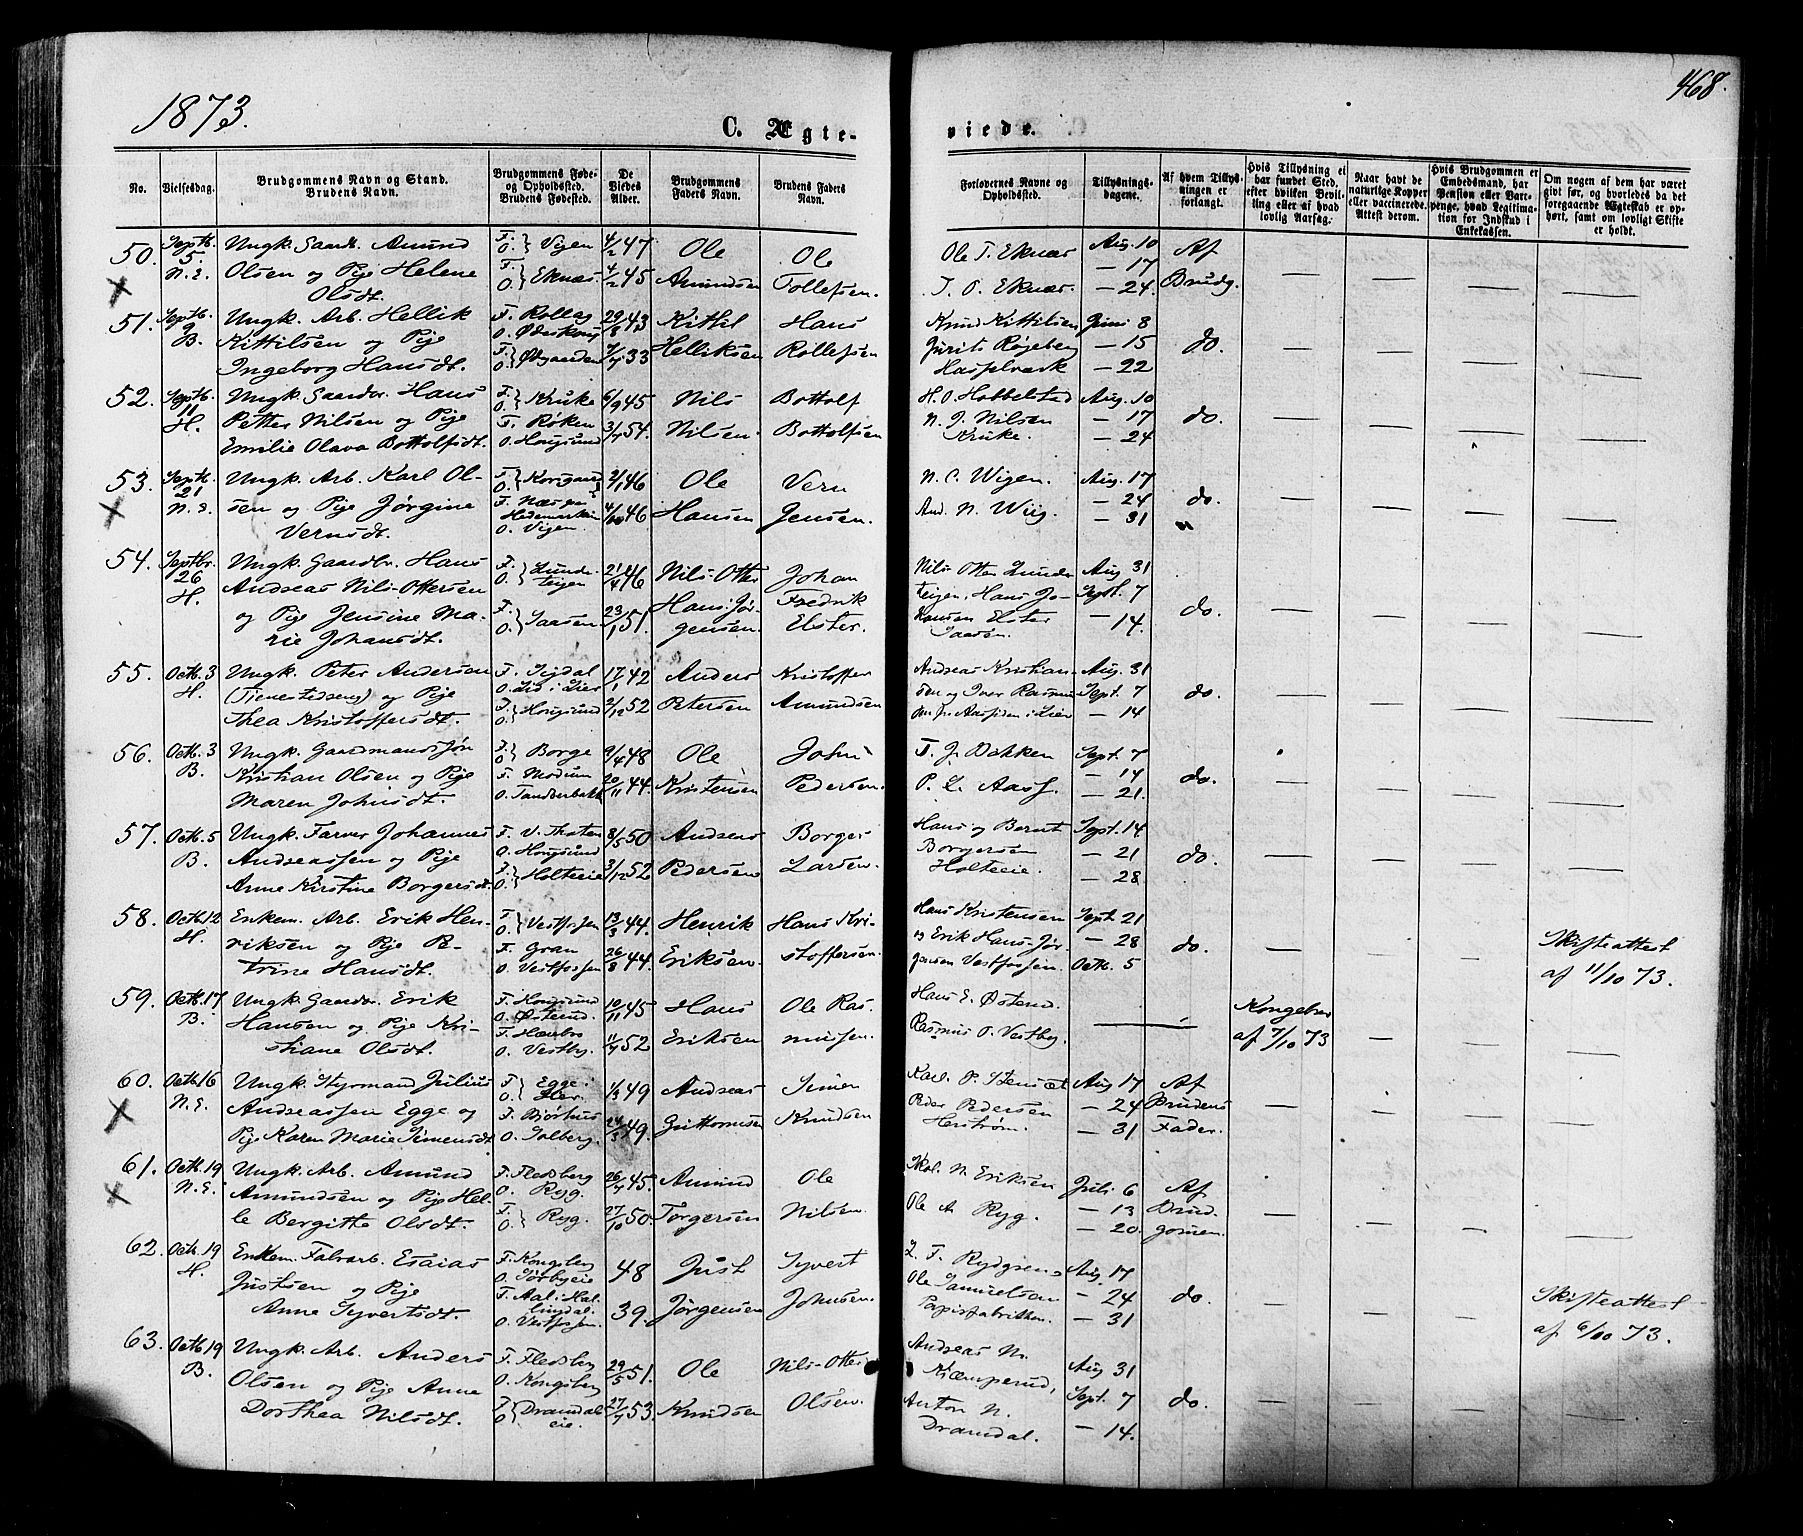 1873.
468.
C. Ægte-
viede.
No.
Vielsesdag.
Brudgommens Navn og Stand.
Brudens Navn.
Brudgommens Føde-
og Opholdssted.
Brudens Fødested.
De
Viedes
Alder.
Brudgommens
Faders Navn.
Brudens Faders
Navn.
Forlovernes Navne og
Opholdssted.
Tillysnings-
dagene.
Af hvem Tillys-
ningen er
forlangt.
Hvis Tillysning ei
har fundet Sted,
efter hvilken Bevil-
ling eller af hvad
lovlig Aarsag.
Naar havt de
naturlige Kopper
eller vaccinerede.
Attest derom.
Hvis Brudgommen er
Embedsmand, har
Pension eller Vart-
penge, hvad Legitima-
tion for Indskud i
Enkekassen.
Om nogen af dem har været
gift før, og hvorledes da det
foregaaende Ægteskab er op-
hørt, samt om lovligt Skifte
er holdt.
50. Septb. 5. N.E. Ungk. Gaardb. Amund
Olsen og Pige Helene
Olsdt.
F. O. Vigen
F. O. Eknæs
4/2 47
4/2 45
Ole
Amundsen
Ole
Tollefsen.
Ole T. Eknæs
T. O. Eknæs.
Aug. 10
— 17
— 24.
Af
Brudg.
51. Septb. 9 B. Ungk. Arb. Hellik
Kittilsen og Pige
Ingeborg Hansdt.
F. Rollag
O. Ødeskoug
F. O. Ødegaarden
29/8 43
7/7 33
Kittil
Helliksen
Hans
Rollefsen
Knud Kittilsen
Gurits Røgeberg
Hasselværk
Juni 8
— 15
— 22
do.
52. Septb. 11 H. Ungk. Gaardbr. Hans
Petter Nilsen og Pige
Emilie Olava Bottolfsdt.
F. O. Kruke
F. Røken
O. Hougsund
6/9 45
3/7 54.
Nils
Nilsen.
Bottolf
Bottolfsen
H. O. Hobbelstad
N. J. Nilsen
Kruke.
Aug. 10
— 17
— 24
do.
53. Septb. 21 N.E. Ungk. Arb. Karl Ol-
sen og Pige Jørgine
Vernsdt.
F. O. Korsgaard
F. Næs paa
Hedemarken
O. Vigen
2/1 46
4/10 46
Ole
Hansen
Vern
Jensen.
N. C. Wigen.
And. N. Wiig.
Aug. 17
— 24
— 31
do.
54. Septbr. 26 H. Ungk. Gaardbr. Hans
Andreas Nils-Ottersen
og Pige Jensine Ma-
rie Johansdt.
F. O. Lunde-
teigen
F. O. Saasen
21/4 46
23/1 51.
Nils-Otter
Hans-Jør-
gensen.
Johan
Fredrik
Elster.
Nils Otter Lunde-
teigen, Hans Jo-
hansen Elster
Saasen.
Aug 31
Sept. 7
— 14.
do.
55. Octb. 3 H. Ungk. Peter Andersen
(Tjenestedreng) og Pige
Thea Kristoffersdt.
F. Sigdal
O. Lid i Lier
F. O. Hougsund
17/1 42
2/12 52
Anders
Petersen
Kristoffer
Amundsen
Andreas Kristian-
sen og Iver Rasmus-
sen fr. Aassiden i Lier
Aug. 31
Sept. 7
— 14
do.
56. Octb. 3 B. Ungk. Gaardmandssøn
Kristian Olsen og Pige
Maren Johnsdt.
F. O. Borge
F. Modum
O. Tandberbakk
9/4 48
20/11 44.
Ole
Kristensen
John
Pedersen.
T. J. Bakken
P. L. Aass.
Sept. 7
— 14
— 21.
do.
57. Octb. 5 B. Ungk. Farver Johannes
Andreassen og Pige
Anne Kirstine Borgersdt.
F. V. Thoten
O. Hougsund
F. O. Holteeie
8/5 50
3/12 52
Andreas
Pedersen
Borger
Larsen.
Hans og Bernt
Borgersen
Holteeie.
Sept. 14
— 21
— 28
do.
58. Octb. 12 H. Enkem. Arb. Erik Hen-
riksen og Pige Pe-
trine Hansdt.
F. O. Vestfossen
F. Gran
O. Vestfossen
13/3 44.
26/8 44.
Henrik
Eriksen.
Hans Kri-
stoffersen.
Hans Kristensen
og Erik Hans-Jør-
gensen Vestfossen.
Sept. 21
— 28
Octb. 5
do.
Skifteattest
af 11/10 73.
59. Octb. 17 B. Ungk. Gaardbr. Erik
Hansen og Pige Kri-
stiane Olsdt.
F. Hougsund
O. Østerud.
F. Hærbro
O. Vestby.
10/11 45
11/7 52
Hans
Eriksen
Ole Ras-
mussen.
Hans E. Østerud.
Rasmus O. Vestby.
Kongebrev
af 7/10 73
60. Octb. 16 N.E. Ungk. Styrmand Julius
Andreassen Egge og
Pige Karen Marie Simensdt.
F. O. Egge i
Lier.
F. Bjørhus
O. Solberg.
1/3 49
24/3 49.
Andreas
Guttormsen
Simen
Knudsen
Karl P. Stensæt
Peder Pedersen
Herstrøm.
Aug 17
— 24
— 31
Af
Brudens
Fader.
61. Octb. 19 N.E. Ungk. Arb. Amund
Amundsen og Pige Hel-
le Bergitte Olsdt.
F. Flesberg
O. Ryg.
F. O. Ryg.
26/7 45.
27/10 50
Amund
Torgersen
Ole
Nilsen.
Skol. N. Eriksen
Ole A. Ryg.
Juli 6
— 13
— 20.
Af
Brud-
gomen.
62. Octb. 19 H. Enkem. Fabrarb. Esaias
Justsen og Pige
Anne Syvertsdt.
F. Kongsberg
O. Sørbyeie
F. Aal i Hal-
lingdal.
O. Vestfossen.
48
39.
Just
Jørgensen
Syvert
Johnsen.
L. T. Rydgren.
Ole Samuelsen
Papirfabrikken.
Aug. 17
— 24
— 31
do.
Skifteattest
af 6/10 73.
63. Octb. 19 B. Ungk. Arb. Anders
Olsen og Pige Anne
Dorthea Nilsdt.
F. Flesberg
O. Kongsberg
F. O. Dramdal-
eie.
29/5 51.
27/7 53.
Ole
Knudsen
Nils-Otter
Olsen.
Andreas N.
Kjæmperud,
Anton N.
Dramdal.
Aug 31
Sept. 7
— 14.
do.